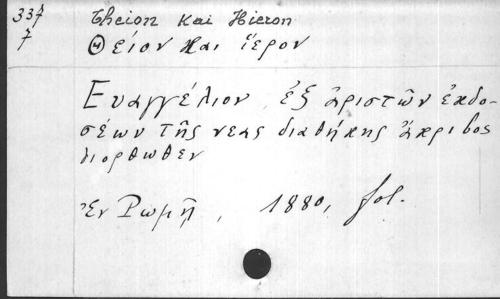 337
7
Theion Kai Hieron
Θείον και ἵερον
Ευαγγέλιον ἐξ ἀριστῶν ἐκδο-
σέων τῆς νεας διαθήκης ἄκριβος
διορθωθεν
Ἐν Ρωμῇ, 1880, fol.